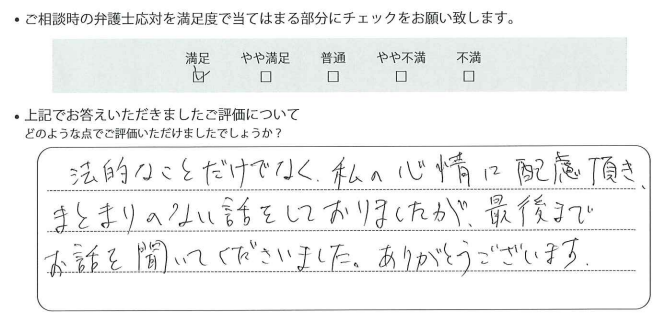 ・ご相談時の弁護士応対を満足度で当てはまる部分にチェックをお願い致します。
満足 やや満足 普通 やや不満 不満
・上記でお答えいただきましたご評価について
どのような点でご評価いただけましたでしょうか？
法的なことだけでなく、私の心情に配慮頂き、
まとまりのない話をしておりましたが、最後まで
お話を聞いてくださいました。ありがとうございます。